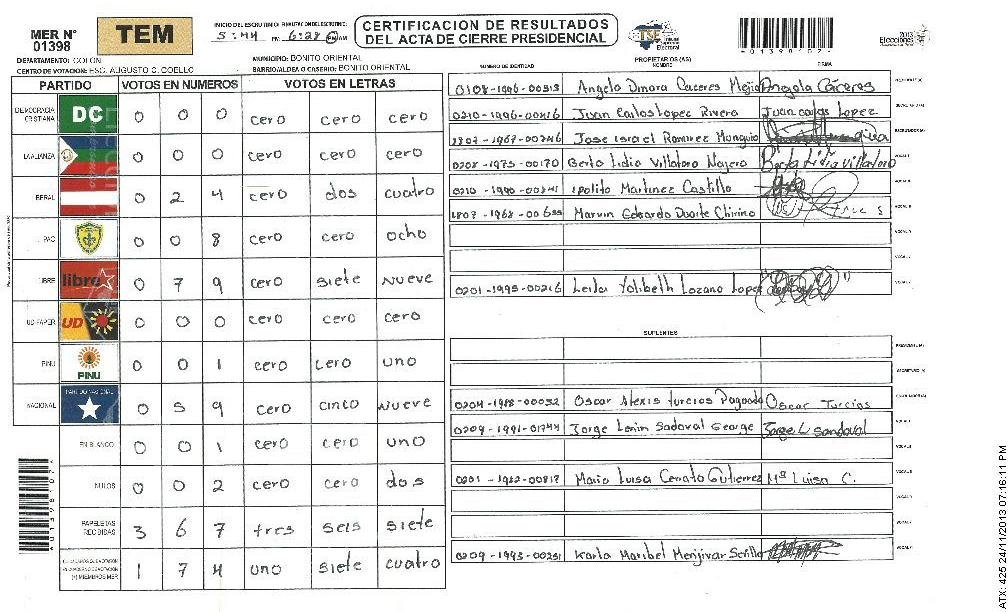 MER N° 01398
TEM
INICIO DEL ESCRUTINIO: FINALIZACION DEL ESCRUTINIO:
5:44 PM 6:28 PM AM
CERTIFICACION DE RESULTADOS
DEL ACTA DE CIERRE PRESIDENCIAL
TSE Tribunal Supremo Electoral
*01398102*
2013 Elecciones
DEPARTAMENTO: COLON
MUNICIPIO: BONITO ORIENTAL
CENTRO DE VOTACION: ESC. AUGUSTO C. COELLO
BARRIO/ALDEA O CASERIO: BONITO ORIENTAL
PARTIDO VOTOS EN NUMEROS VOTOS EN LETRAS
DEMOCRACIA CRISTIANA DC 0 0 0 cero cero cero
LA ALIANZA 0 0 0 cero cero cero
BERAL 0 2 4 cero dos cuatro
PAC 0 0 8 cero cero ocho
LIBRE libre 0 7 9 cero siete nueve
UD-FAPER UD 0 0 0 cero cero cero
PINU PINU 0 0 1 cero cero uno
NACIONAL PARTIDO NACIONAL 0 5 9 cero cinco nueve
EN BLANCO 0 0 1 cero cero uno
NULOS 0 0 2 cero cero dos
PAPELETAS RECIBIDAS 3 6 7 tres seis siete
(+) MIEMBROS MER 1 7 4 uno siete cuatro
NUMERO DE IDENTIDAD PROPIETARIOS (AS) NOMBRE FIRMA
0108-1996-00313 Angela Dmora Caceres Mejia Angela Cáceres
0210-1996-00216 Juan Carlos Lopez Rivera Juan carlos Lopez
1807-1967-00246 Jose Israel Ramirez Munguia
0208-1975-00170 Berta Lidia Villatoro Najero Berta Lidia Villatoro
0210-1990-00241 Ipolito Martinez Castillo
1807-1968-00655 Marvin Edgardo Duarte Chirino
0201-1995-00216 Leida Yolibeth Lozano Lopez
SUPLENTES
0204-1988-00052 Oscar Alexis turcios Pagoada Oscar Turcios
0209-1991-01744 Jorge Lenin Sadoval George Jorge L Sandoval
0201-1982-00817 Maria Luisa Cerrato Gutierrez Mª Luisa C.
0209-1993-00251 Karla Maribel Menjivar Sevilla
ATX: 425 24/11/2013 07:16:11 PM